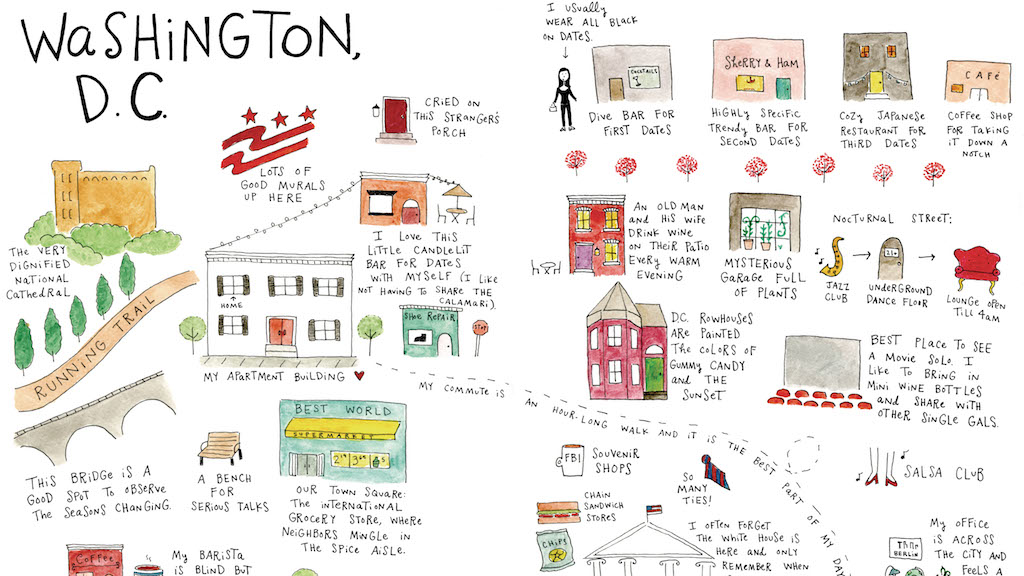 WASHINGTON,
D.C.
CRIED ON
THIS STRANGER'S
PORCH
LOTS OF
GOOD MURALS
UP HERE
THE VERY
DIGNIFIED
NATIONAL
CATHEDRAL
I LOVE THIS
LITTLE CANDLELIT
BAR FOR DATES
WITH MYSELF (I LIKE
NOT HAVING TO SHARE THE
CALAMARI).
HOME
SHOE REPAIR
STOP
RUNNING TRAIL
MY APARTMENT BUILDING
MY COMMUTE IS AN HOUR-LONG WALK AND IT IS THE BEST PART OF MY DAY
THIS BRIDGE IS A
GOOD SPOT TO OBSERVE
THE SEASONS CHANGING.
A BENCH
FOR
SERIOUS TALKS
BEST WORLD
SUPERMARKET
OUR TOWN SQUARE:
THE INTERNATIONAL
GROCERY STORE, WHERE
NEIGHBORS MINGLE IN
THE SPICE AISLE.
COFFEE
MY BARISTA
IS BLIND BUT
I USUALLY
WEAR ALL BLACK
ON DATES.
COCKTAILS
DIVE BAR FOR
FIRST DATES
SHERRY & HAM
HIGHLY SPECIFIC
TRENDY BAR FOR
SECOND DATES
COZY JAPANESE
RESTAURANT FOR
THIRD DATES
CAFé
COFFEE SHOP
FOR TAKING
IT DOWN A
NOTCH
AN OLD MAN
AND HIS WIFE
DRINK WINE
ON THEIR PATIO
EVERY WARM
EVENING
MYSTERIOUS
GARAGE FULL
OF PLANTS
NOCTURNAL STREET:
JAZZ
CLUB
UNDERGROUND
DANCE FLOOR
LOUNGE OPEN
TILL 4AM
D.C. ROWHOUSES
ARE PAINTED
THE COLORS OF
GUMMY CANDY
AND THE
SUNSET
BEST PLACE TO SEE
A MOVIE SOLO. I
LIKE TO BRING IN
MINI WINE BOTTLES
AND SHARE WITH
OTHER SINGLE GALS.
FBI
SOUVENIR
SHOPS
SO
MANY
TIES!
SALSA CLUB
CHAIN
SANDWICH
STORES
CHIPS
I OFTEN FORGET
THE WHITE HOUSE IS
HERE AND ONLY
REMEMBER WHEN
BERLIN
MY OFFICE
IS ACROSS
THE CITY AND
FEELS A